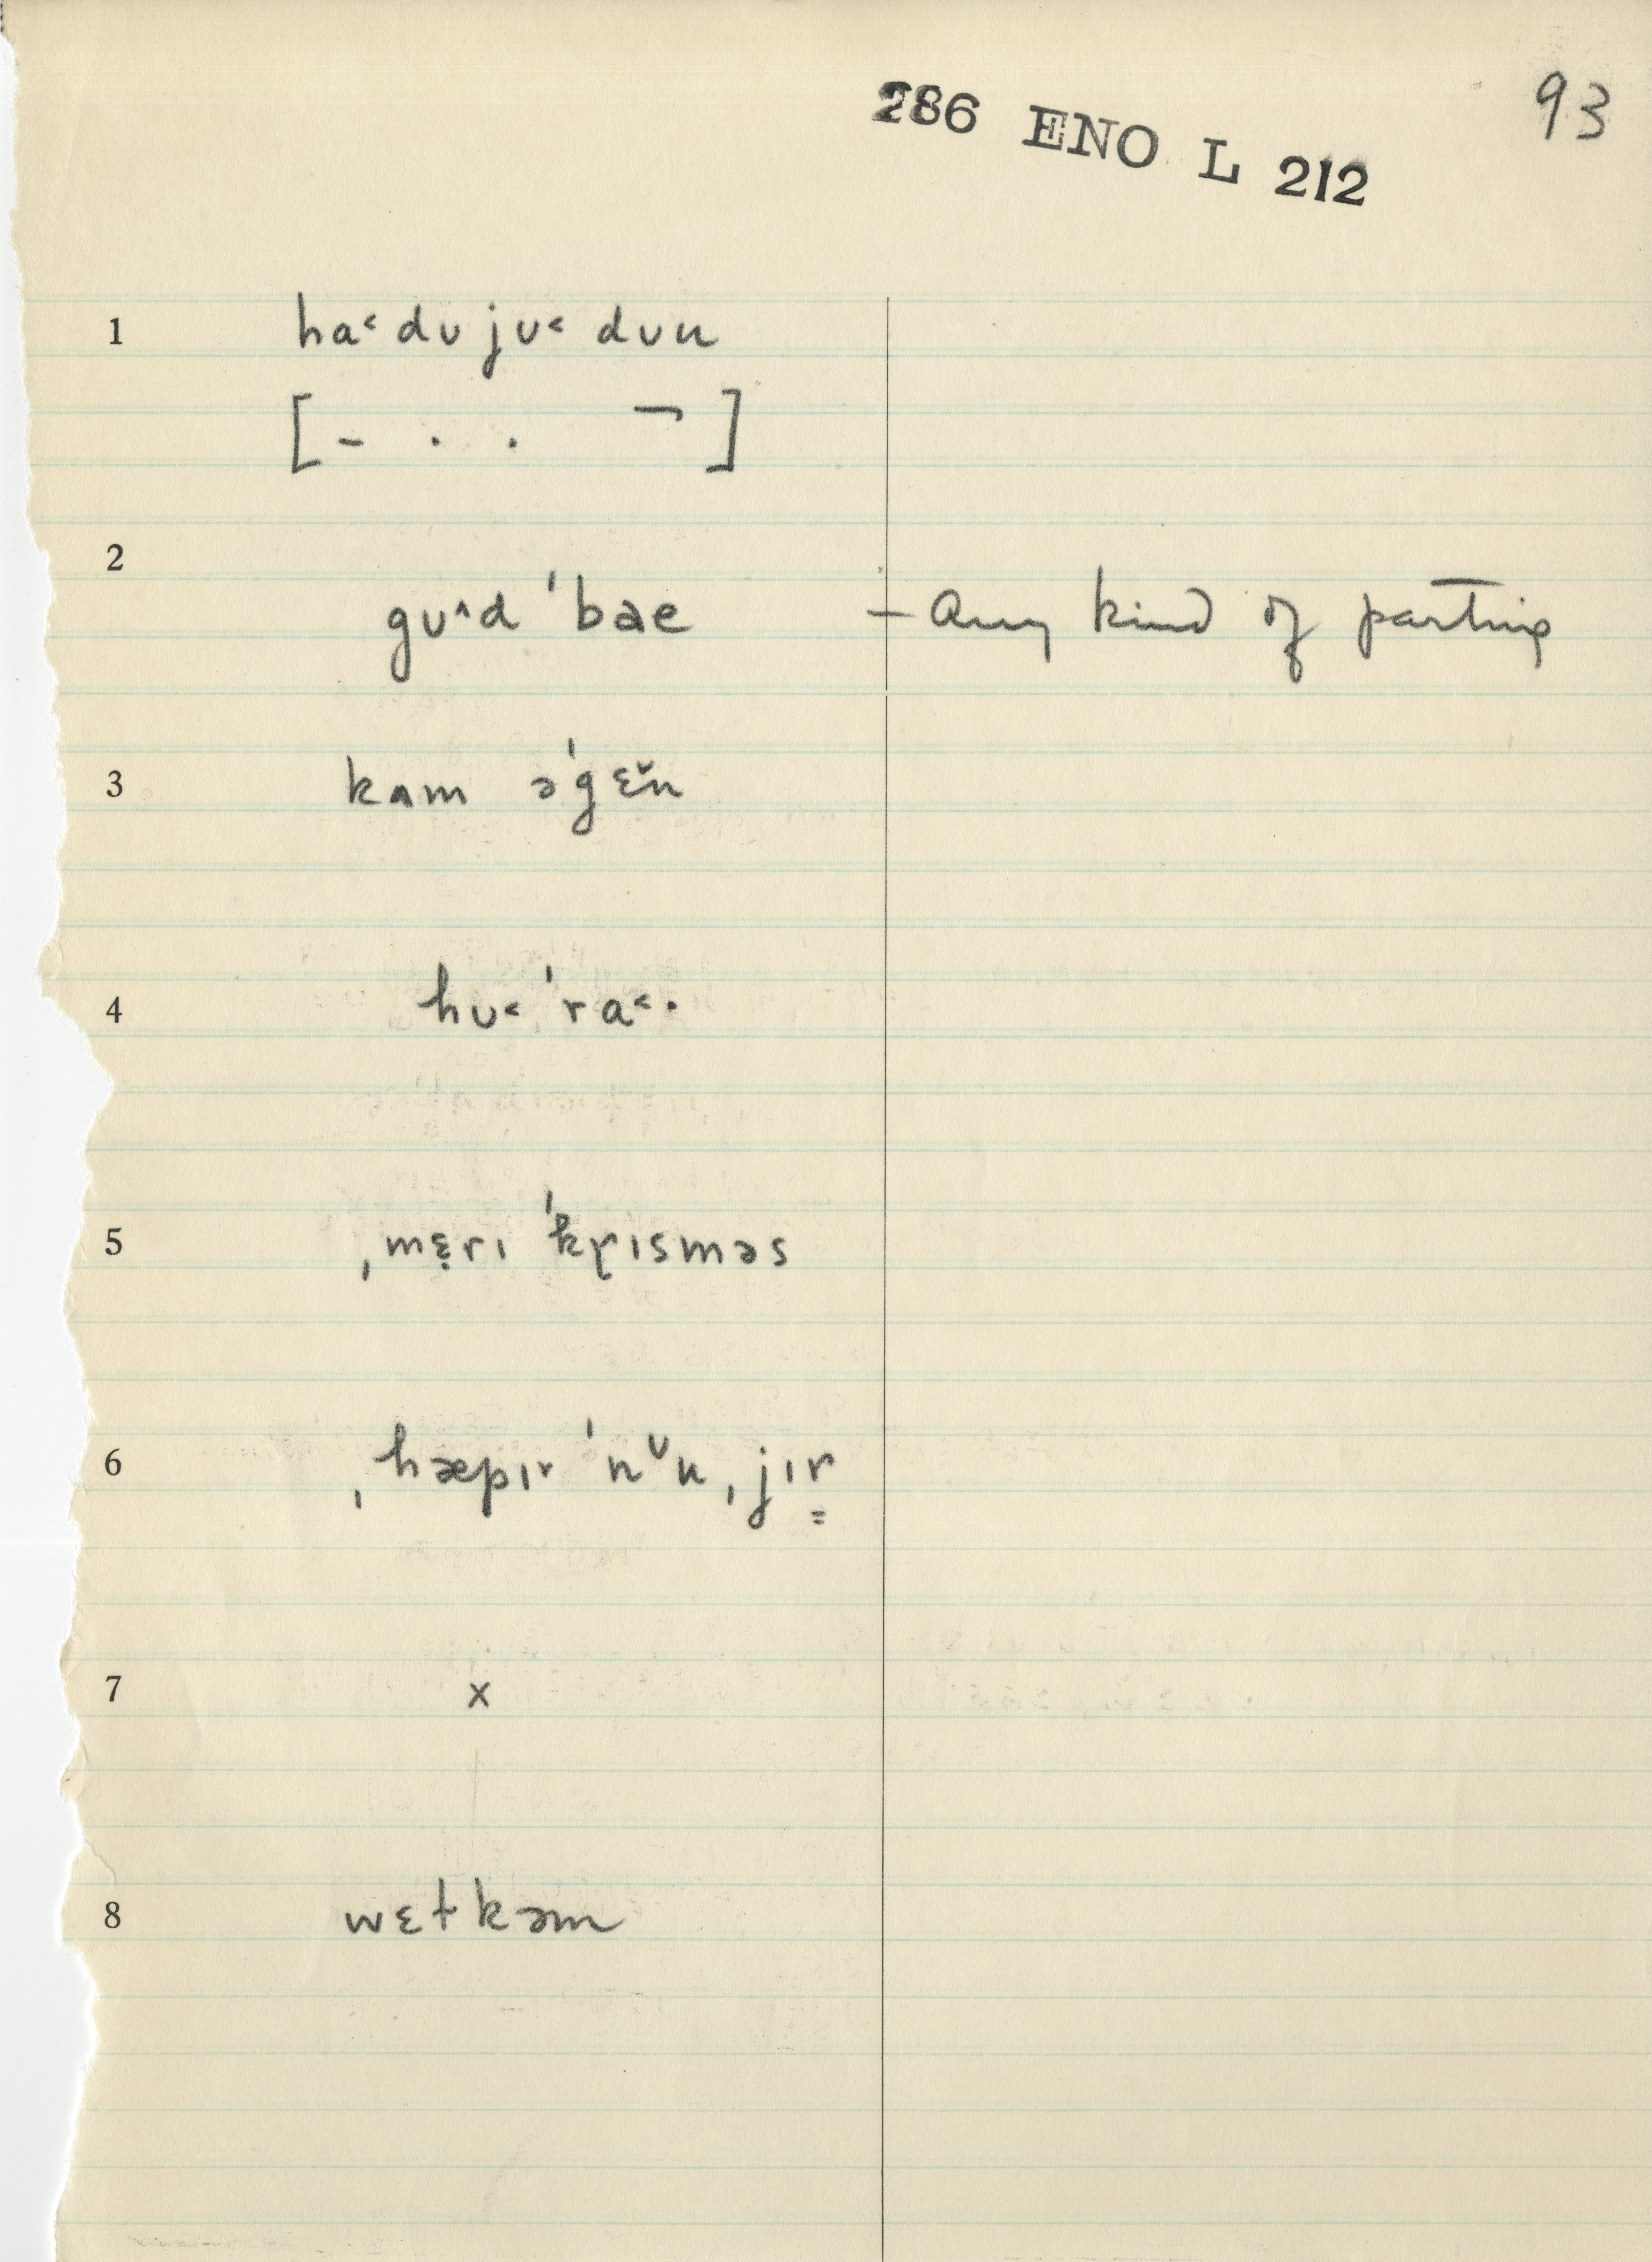 286 ENO L 212
93
1 ha˂ dʊ jʊ˂ dʊu
[- . . ¬]
2
gʊ˄d ˈbae - Any kind of parting
3 kʌm əˈgɛ̆n
4 hʊ˂ ˈra˂·
5 ˌmɛ̣rɪ ˈkr̥ɪsməs
6 ˌhæpɪ˅ ˈnᵛu ˌjɪr̳
7 x
8 wɛɫkəm